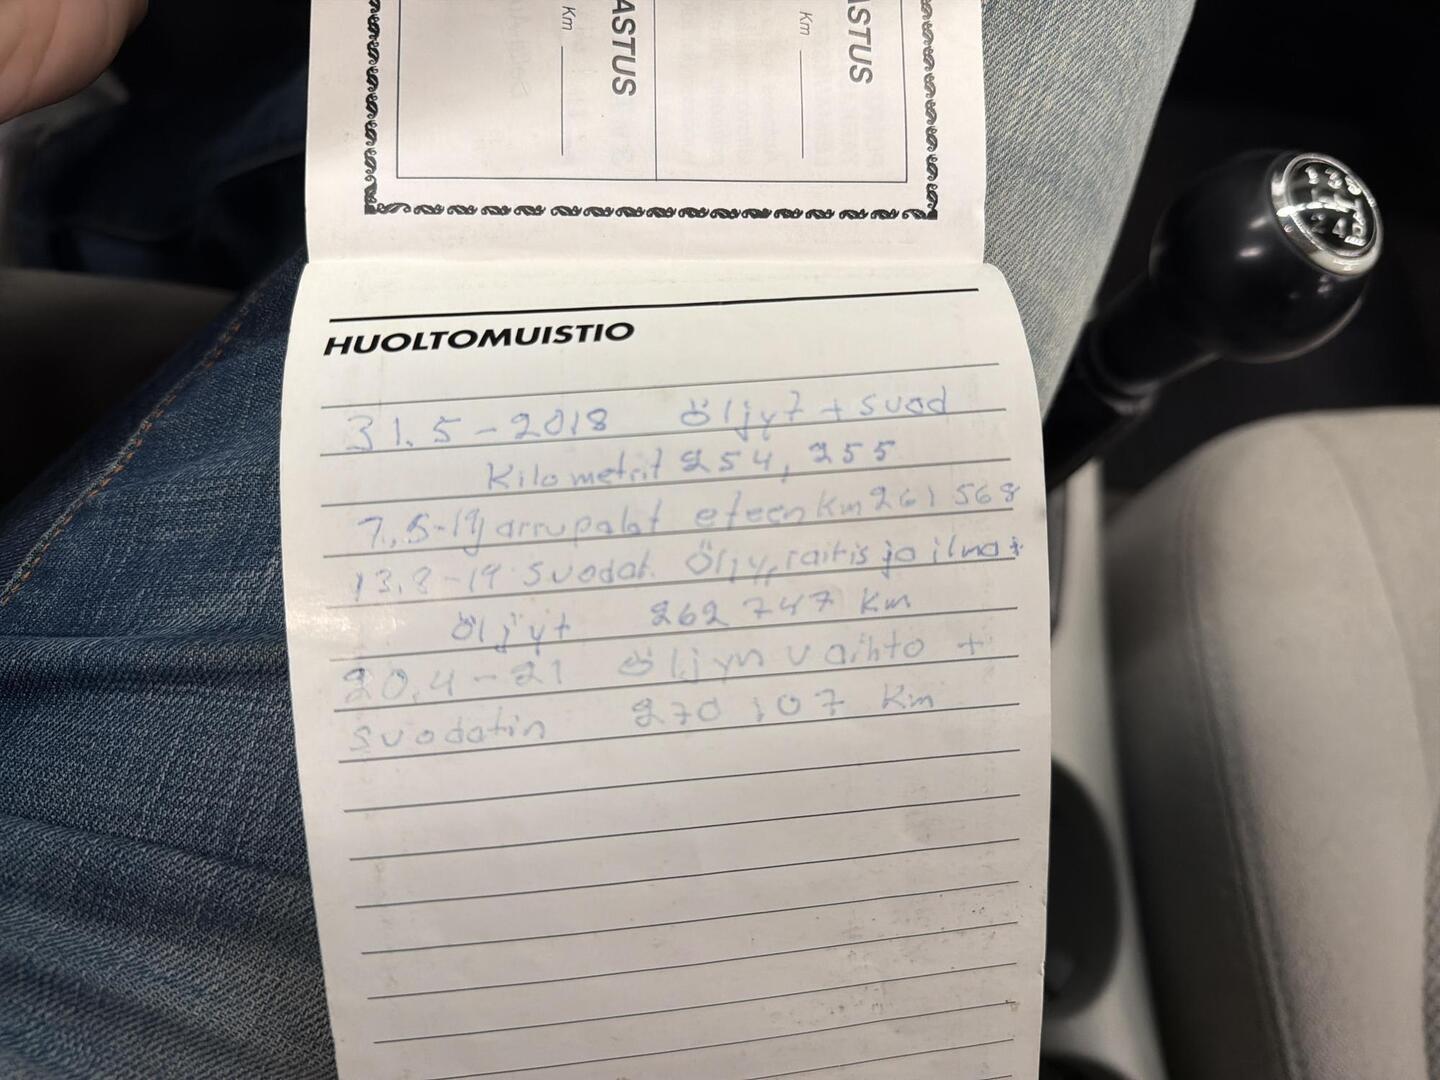 ASTUS
Km
ASTUS
Km
HUOLTOMUISTIO
31.5-2018 öljyt + suod
Kilometrit 254,255
7.5-19 jarrupalat eteen km 261568
13.8-19 suodat. Öljy, raitis ja ilma +
öljyt 262 747 km
20.4-21 öljyn vaihto +
suodatin 270 107 km
1 3 5
2 4 R